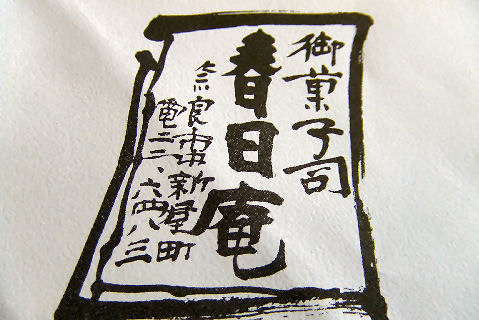 御菓子司
春日庵
奈良市新屋町
電二二、六四八三